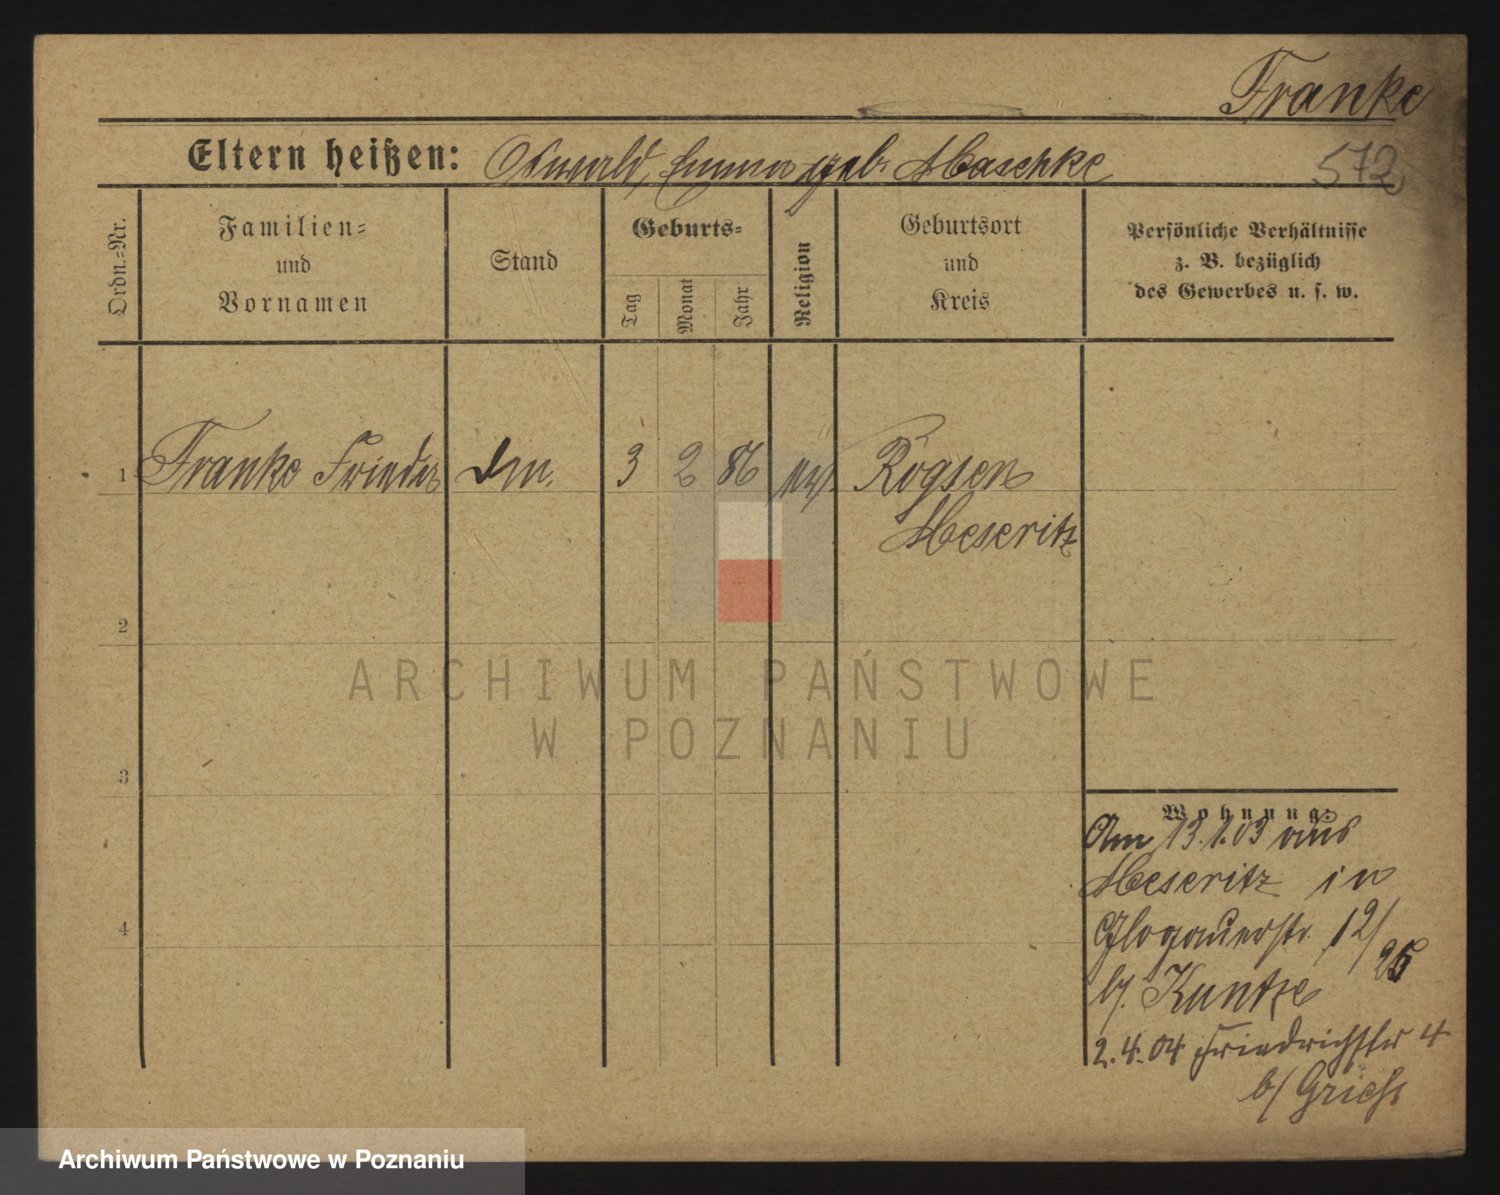 Franke
572
Eltern heißen: Oswald, Emma geb. Maschke
Ordn.-Nr.
Familien- und Vornamen
Stand
Geburts-
Tag
Monat
Jahr
Religion
Geburtsort und Kreis
Persönliche Verhältnisse z. B. bezüglich des Gewerbes u. s. w.
1 Franke Frieda 3 2 86 Rogsen
Meseritz
2
3
4
ARCHIWUM PAŃSTWOWE
W POZNANIU
Wohnung:
Am 13.1.03 aus
Meseritz in
Glogauerstr. 12/
25
b/. Kuntze
2.4.04 Friedrichstr 4
b/
Archiwum Państwowe w Poznaniu